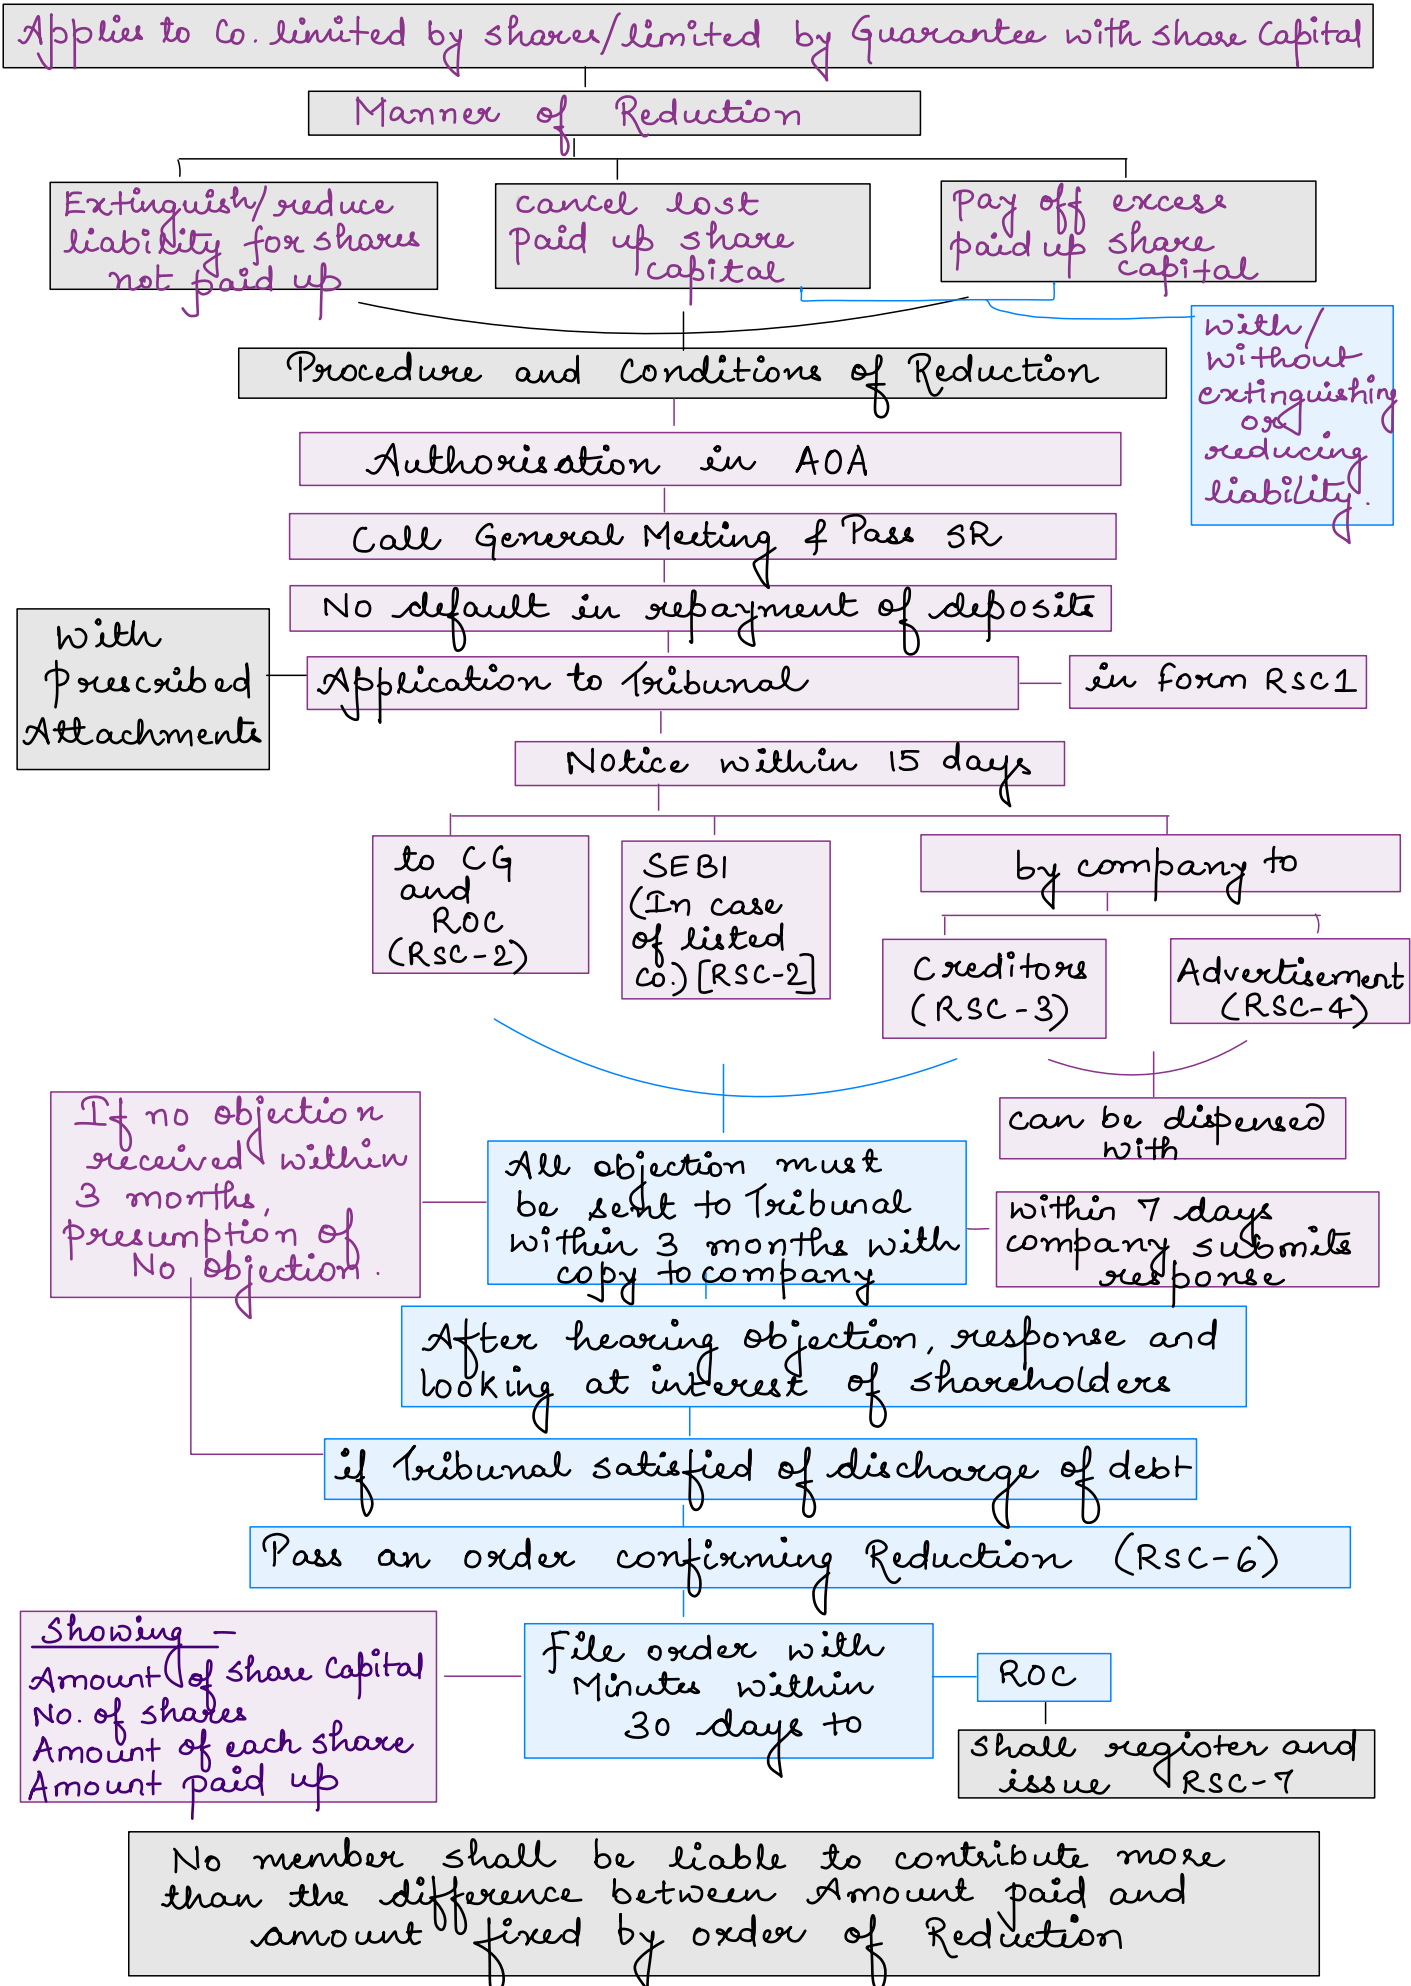 Applies to Co. limited by shares/limited by Guarantee with share Capital
Manner of Reduction
Extinguish/reduce
liability for shares
not paid up
cancel lost
paid up share
capital
Pay off excess
paid up share
capital
with/
without
extinguishing
or
reducing
liability.
Procedure and Conditions of Reduction
Authorisation in AOA
Call General Meeting & Pass SR
No default in repayment of deposits
With
prescribed
Attachments
Application to Tribunal
in form RSC1
Notice within 15 days
to CG
and
ROC
(RSC-2)
SEBI
(In case
of listed
co.) [RSC-2]
by company to
Creditors
(RSC-3)
Advertisement
(RSC-4)
can be dispensed
with
If no objection
received within
3 months,
presumption of
No Objection.
All objection must
be sent to Tribunal
within 3 months with
copy to company
within 7 days
company submits
response
After hearing objection, response and
looking at interest of shareholders
if Tribunal satisfied of discharge of debt
Pass an order confirming Reduction (RSC-6)
Showing -
Amount of share Capital
No. of shares
Amount of each share
Amount paid up
File order with
Minutes within
30 days to
ROC
shall register and
issue RSC-7
No member shall be liable to contribute more
than the difference between Amount paid and
amount fixed by order of Reduction